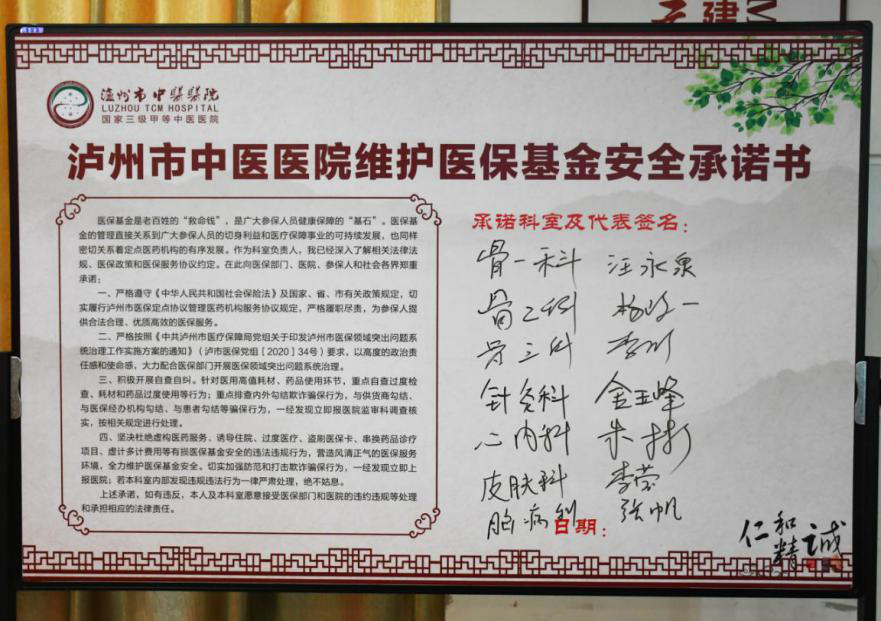 泸州市中医医院
LUZHOU TCM HOSPITAL
国家三级甲等中医医院
泸州市中医医院维护医保基金安全承诺书
医保基金是老百姓的“救命钱”，是广大参保人员健康保障的“基石”。医保基
金的管理直接关系到广大参保人员的切身利益和医疗保障事业的可持续发展，也同样
密切关系着定点医药机构的有序发展。作为科室负责人，我已经深入了解相关法律法
规、医保政策和医保服务协议约定。在此向医保部门、医院、参保人和社会各界郑重
承诺：
一、严格遵守《中华人民共和国社会保险法》及国家、省、市有关政策规定，切
实履行泸州市医保定点协议管理医药机构服务协议规定，严格履职尽责，为参保人提
供合法合理、优质高效的医保服务。
二、严格按照《中共泸州市医疗保障局党组关于印发泸州市医保领域突出问题系
统治理工作实施方案的通知》（泸市医保党组［2020］34号）要求，以高度的政治责
任感和使命感，大力配合医保部门开展医保领域突出问题系统治理。
三、积极开展自查自纠。针对医用高值耗材、药品使用环节，重点自查过度检
查、耗材和药品过度使用等行为；重点排查内外勾结欺诈骗保行为，与供货商勾结、
与医保经办机构勾结、与患者勾结等骗保行为，一经发现立即报医院监审科调查核
实，按相关规定进行处理。
四、坚决杜绝虚构医药服务、诱导住院、过度医疗、盗刷医保卡、串换药品诊疗
项目、虚计多计费用等有损医保基金安全的违法违规行为，营造风清正气的医保服务
环境，全力维护医保基金安全。切实加强防范和打击欺诈骗保行为，一经发现立即上
报医院；若本科室内部发现违规违法行为一律严肃处理，绝不姑息。
上述承诺，如有违反，本人及本科室愿意接受医保部门和医院的违约违规等处理
和承担相应的法律责任。
承诺科室及代表签名：
骨一科 汪永泉
骨二科
骨三科 李川
针灸科 金玉峰
心内科 朱彬
皮肤科 李莹
脑病科 张帆
日期：
仁和精诚